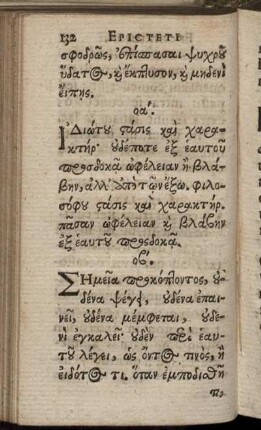 132 ΕΡΙΣΤΕΤΙ
σφοδρῶς, ἐπίσπασαι ψυχροῦ
ὕδατος, καὶ ἔκπτυσον, καὶ μηδενὶ
εἴπῃς.
οα΄.
ἸΔιώτου στάσις καὶ χαρα-
κτήρ· οὐδέποτε ἐξ ἑαυτοῦ
προσδοκᾷ ὠφέλειαν ἢ βλά-
βην, ἀλλ' ἀπὸ τῶν ἔξω. φιλο-
σόφου στάσις καὶ χαρακτήρ.
πᾶσαν ὠφέλειαν καὶ βλάβην
ἐξ ἑαυτοῦ προσδοκᾷ.
οβ΄.
ΣΗμεῖα προκόπτοντος, οὐ-
δένα ψέγει, οὐδένα ἐπαι-
νεῖ, οὐδένα μέμφεται, οὐδε-
νὶ ἐγκαλεῖ· οὐδὲν περὶ ἑαυ-
τοῦ λέγει, ὡς ὄντος τινὸς, ἢ
εἰδότος τι. ὅταν ἐμποδισθῇ